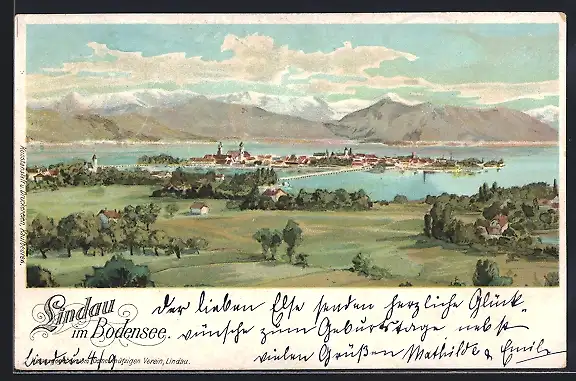 Lindau
im Bodensee.
Der lieben Else senden herzliche Glück-
wünsche zum Geburtstage nebst
vielen Grüßen Mathilde & Emil
Lindau 4/9
Verein, Lindau.